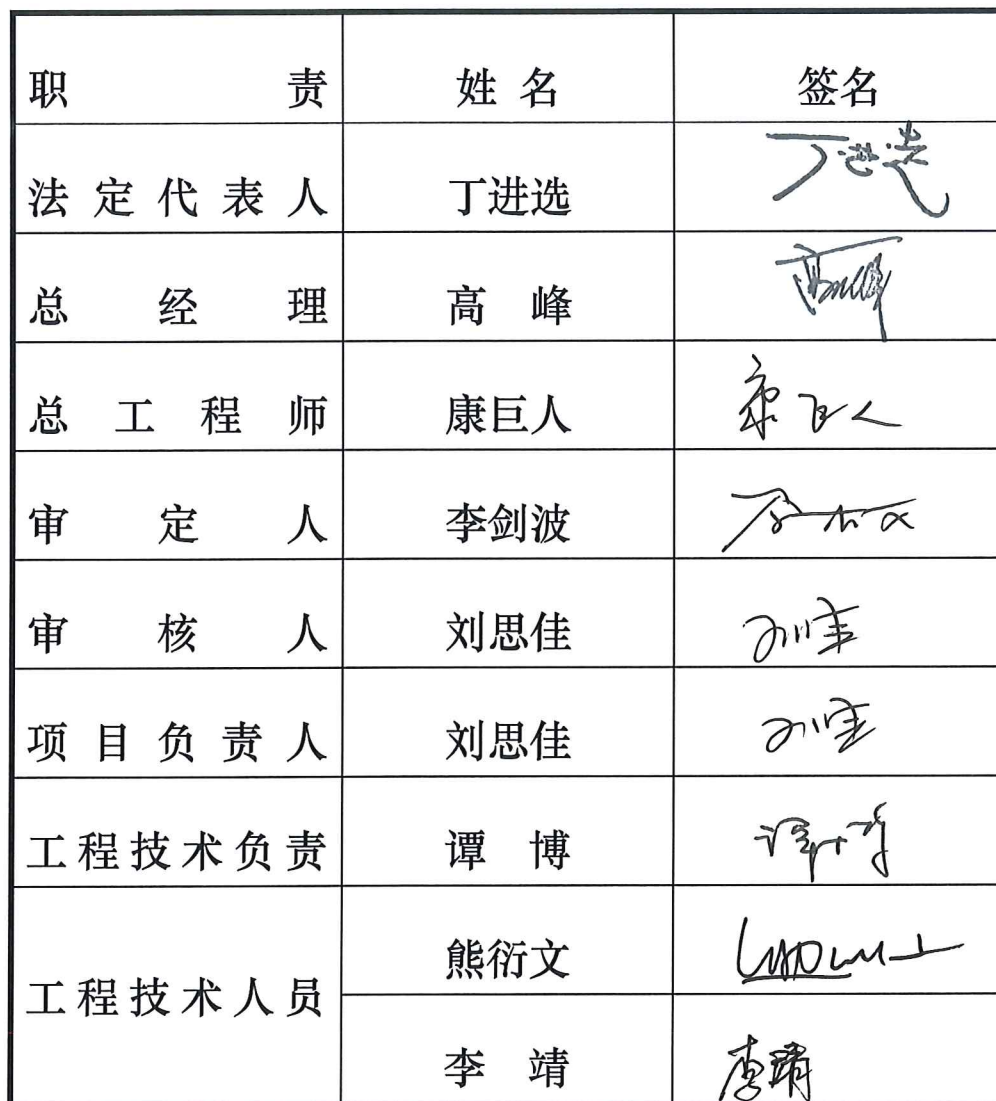 职责 姓名 签名
法定代表人 丁进选 丁进选
总经理 高峰 高峰
总工程师 康巨人 康巨人
审定人 李剑波
审核人 刘思佳
项目负责人 刘思佳
工程技术负责 谭博 谭博
工程技术人员 熊衍文
李靖 李靖